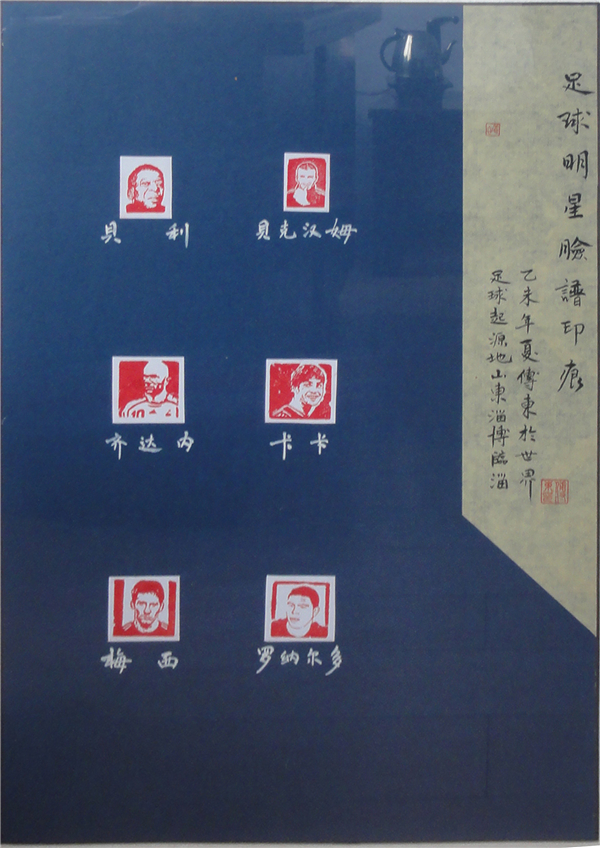 足球明星臉譜印痕
乙未年夏傅東於世界
足球起源地山東淄博臨淄
貝利
貝克汉姆
齐达内
卡卡
梅西
罗纳尔多